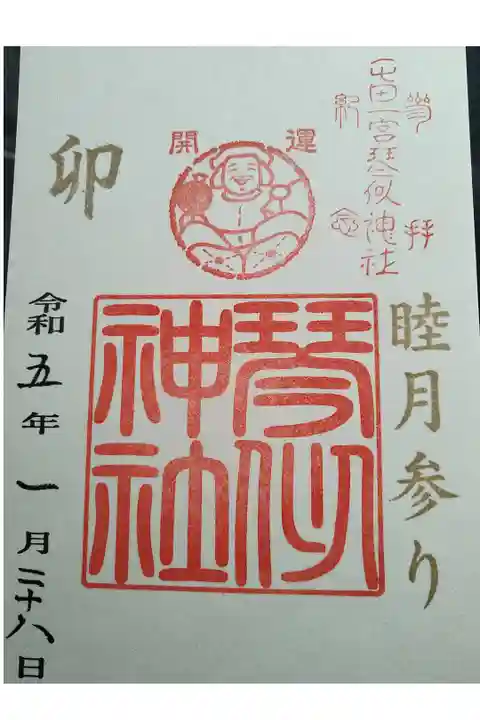 参拝
屯田一宮琴似神社
紀念
開運
卯
睦月参り
琴似
神社
令和五年一月二十八日